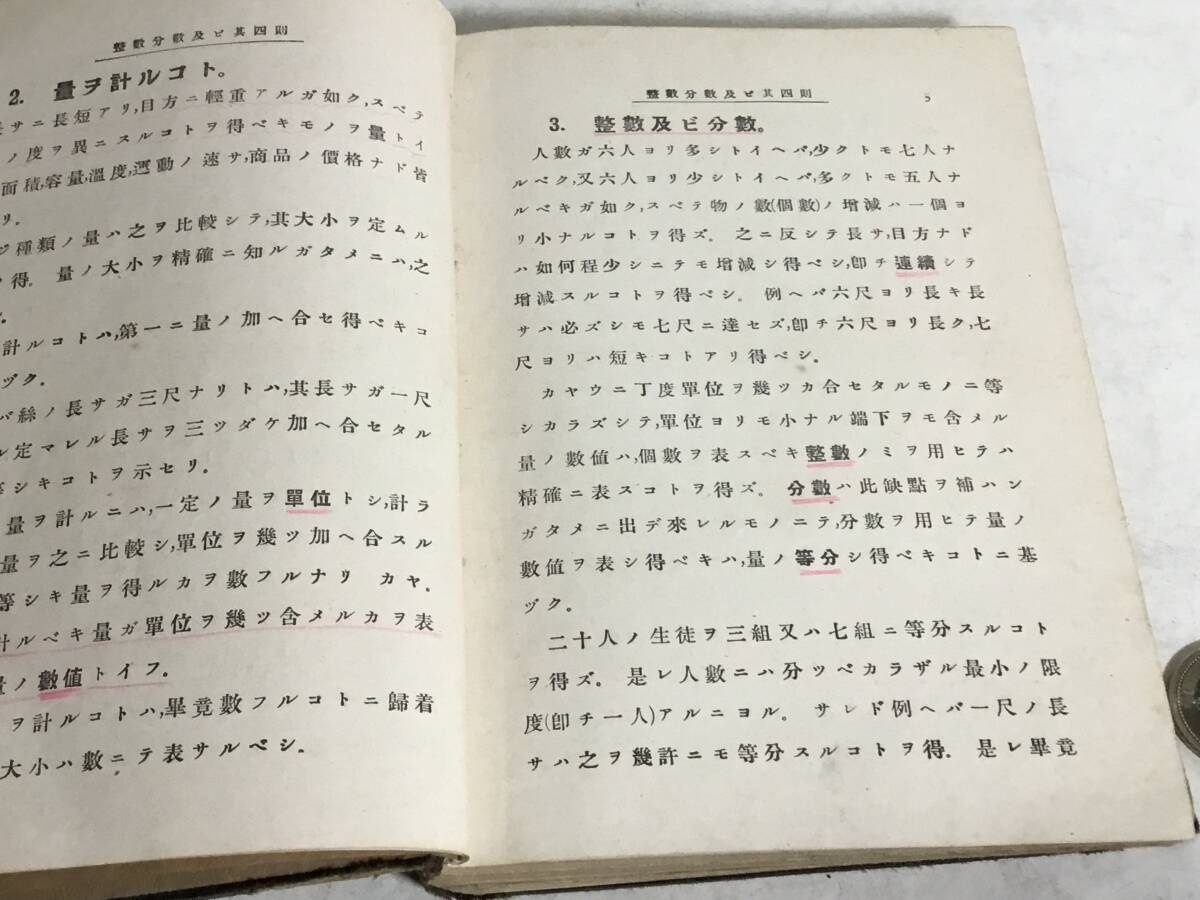 整數分數及ビ其四則
2. 量ヲ計ルコト。
サニ長短アリ,目方ニ輕重アルガ如ク,スベテ
ノ度ヲ異ニスルコトヲ得ベキモノヲ量トイ
面積,容量,溫度,運動ノ速サ,商品ノ價格ナド皆
リ。
ジ種類ノ量ハ之ヲ比較シテ,其大小ヲ定ムル
得。 量ノ大小ヲ精確ニ知ルガタメニハ,之
計ルコトハ,第一ニ量ノ加ヘ合セ得ベキコ
ヅク。
バ絲ノ長サガ三尺ナリトハ,其長サガ一尺
定マレル長サヲ三ツダケ加ヘ合セタル
シキコトヲ示セリ。
量ヲ計ルニハ,一定ノ量ヲ單位トシ,計ラ
量ヲ之ニ比較シ,單位ヲ幾ツ加ヘ合スル
等シキ量ヲ得ルカヲ數フルナリ カヤ.
計ルベキ量ガ單位ヲ幾ツ含メルカヲ表
量ノ數値トイフ。
ヲ計ルコトハ,畢竟數フルコトニ歸着
大小ハ數ニテ表サルベシ.
整數分數及ビ其四則
3. 整數及ビ分數。
人數ガ六人ヨリ多シトイヘバ,少クトモ七人ナ
ルベク,又六人ヨリ少シトイヘバ,多クトモ五人ナ
ルベキガ如ク,スベテ物ノ數(個數)ノ增減ハ一個ヨ
リ小ナルコトヲ得ズ。 之ニ反シテ長サ,目方ナド
ハ如何程少シニテモ增減シ得ベシ,卽チ連續シテ
增減スルコトヲ得ベシ。 例ヘバ六尺ヨリ長キ長
サハ必ズシモ七尺ニ達セズ,卽チ六尺ヨリ長ク,七
尺ヨリハ短キコトアリ得ベシ。
カヤウニ丁度單位ヲ幾ツカ合セタルモノニ等
シカラズシテ,單位ヨリモ小ナル端下ヲモ含メル
量ノ數値ハ,個數ヲ表スベキ整數ノミヲ用ヒテハ
精確ニ表スコトヲ得ズ。 分數ハ此缺點ヲ補ハン
ガタメニ出デ來レルモノニテ,分數ヲ用ヒテ量ノ
數値ヲ表シ得ベキハ,量ノ等分シ得ベキコトニ基
ヅク。
二十人ノ生徒ヲ三組又ハ七組ニ等分スルコト
ヲ得ズ. 是レ人數ニハ分ツベカラザル最小ノ限
度(卽チ一人)アルニヨル。 サレド例ヘバ一尺ノ長
サハ之ヲ幾許ニモ等分スルコトヲ得. 是レ畢竟